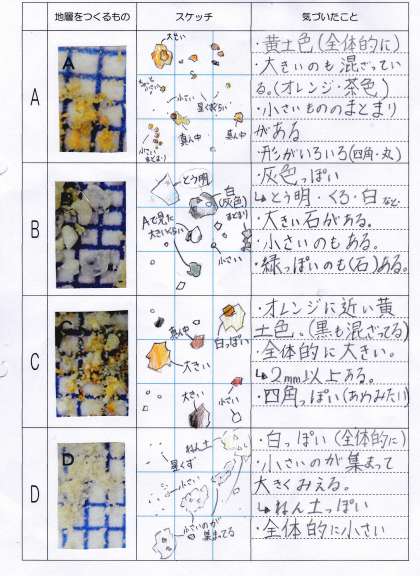 地層をつくるもの スケッチ 気づいたこと
A
A
大きい
小さい
真ん中
真ん中
小さい
まとまり
・黄土色(全体的に)
・大きいのも混ざってい
る。(オレンジ・茶色)
・小さいもののまとまり
がある
・形がいろいろ(四角・丸)
B
B
とう明
白
(灰色)
まとまり
Aで見た
大きいくらい
小さい
・灰色っぽい
↳とう明・くろ・白など
・大きい石がある。
・小さいのもある。
・緑っぽいのも(石)ある。
C
C
真ん中
白っぽい
大きい
大きい
小さい
・オレンジに近い黄
土色。(黒も混ざってる)
・全体的に大きい。
↳2mm以上ある。
・四角っぽい(あめみたい)
D
D
ねん土
星くず
小さい
小さいのが
集まってる
・白っぽい(全体的に)
・小さいのが集まって
大きくみえる。
↳ねん土っぽい
・全体的に小さい